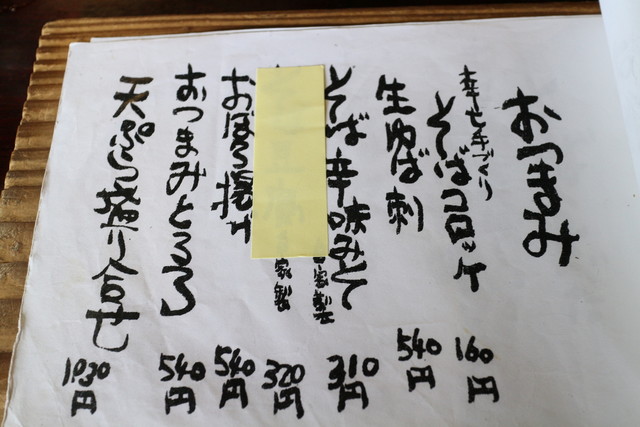 おつまみ
幸せ手づくり
そばコロッケ
160円
生ゆば刺
540円
そば辛味みそ
自家製
310円
家製
320円
おぼろ揚げ
540円
おつまみとろろ
540円
天ぷら盛り合せ
1030円